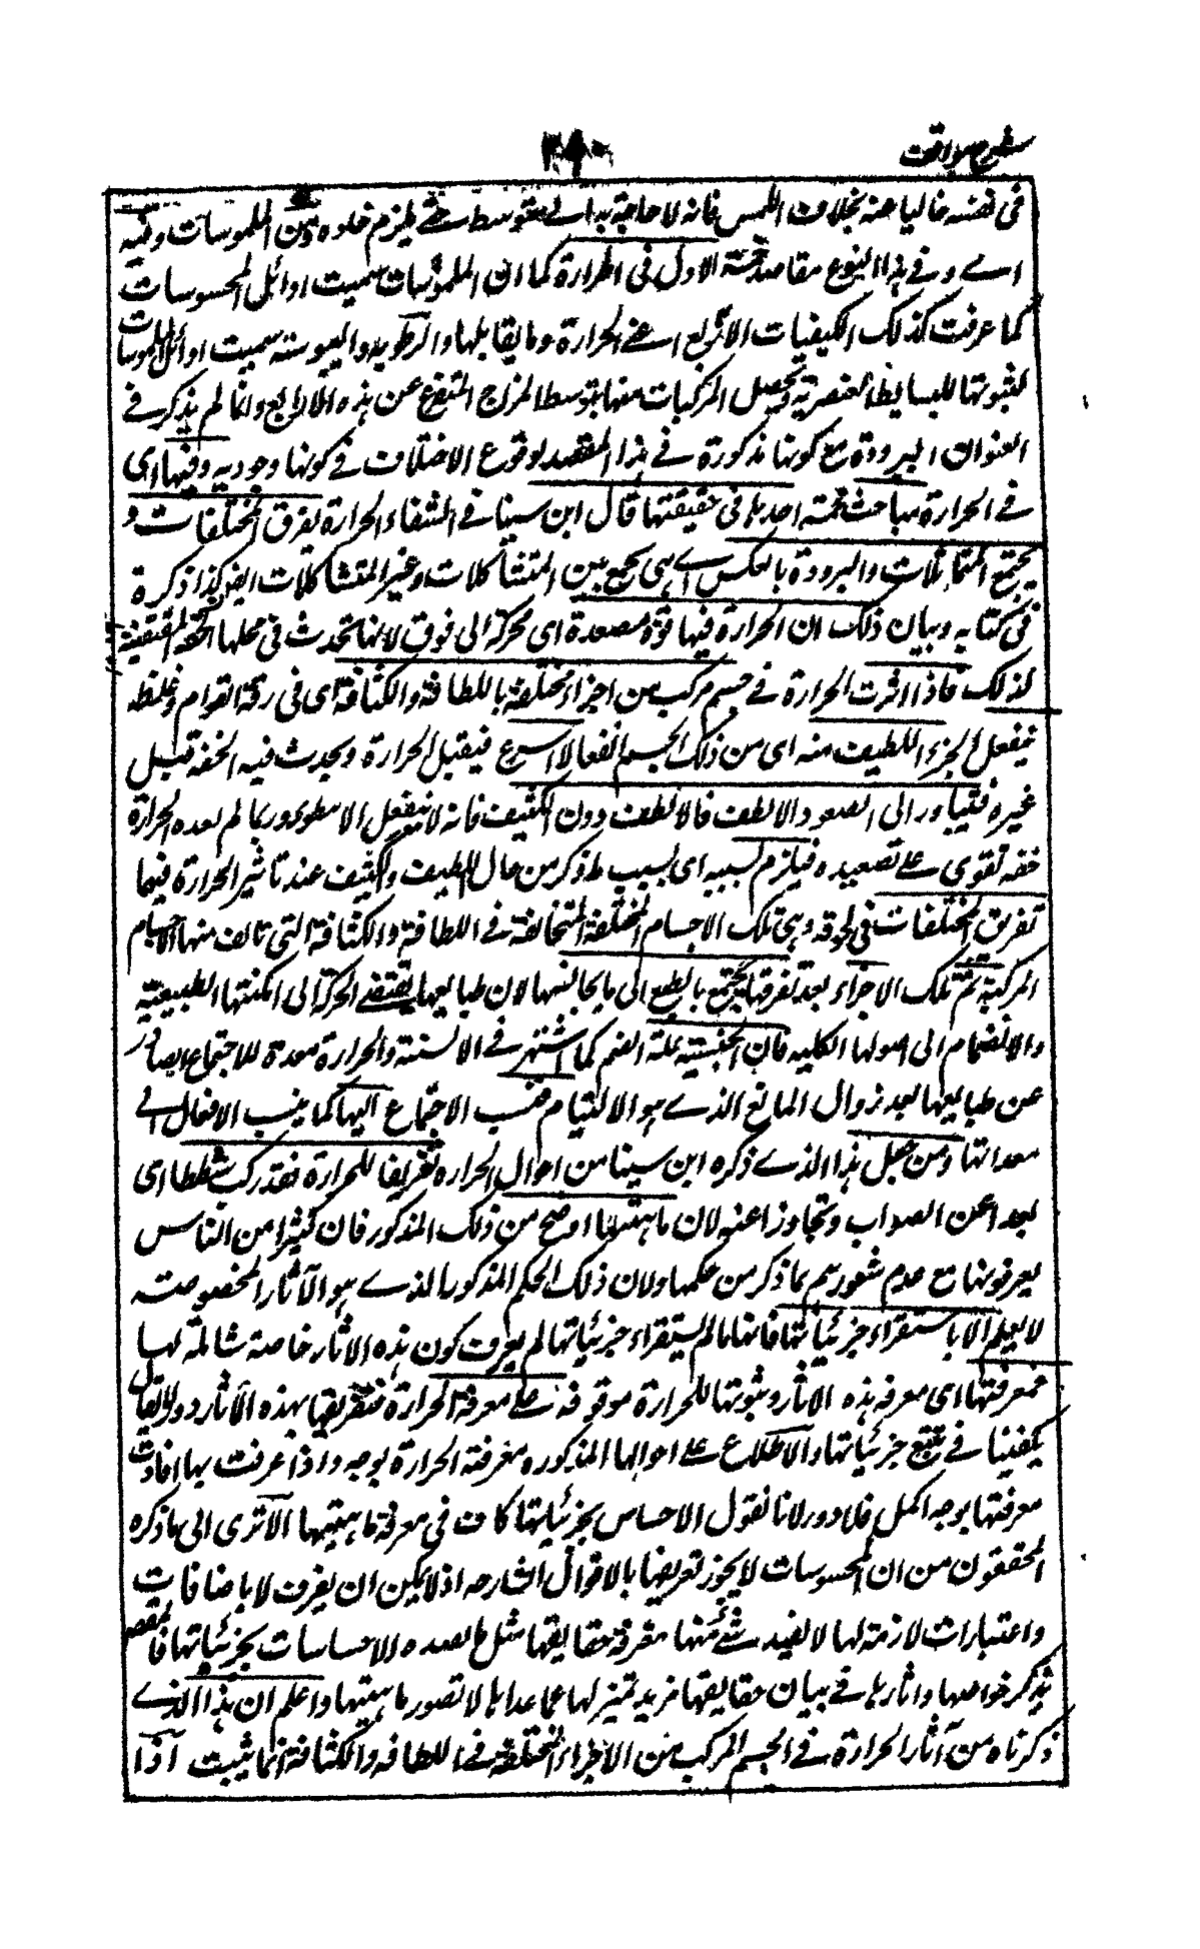 شرح مواقف
٢٨٠
فى نفسه خاليا عنه بخلاف اللمس فانه لا حاجة به الى متوسط حتى يلزم خلوه عن الملموسات وفيه
اى وفى هذا النوع مقاصد خمسة الاول فى الحرارة كما ان الملموسات سميت اوائل المحسوسات
كما عرفت كذلك الكيفيات الاربع اعنى الحرارة وما يقابلها والرطوبة واليبوسة سميت اوائل الملموسات
لثبوتها للبسايط العنصرية وتحصل المركبات منها بتوسط المزاج المتفرع عن هذه الاربع وانما لم يذكر فى
العنوان البرودة مع كونها مذكورة فى هذا المقصد لوقوع الاختلاف فى كونها وجودية وفيها اى
فى الحرارة مباحث خمسة احدها فى حقيقتها قال ابن سينا فى الشفاء الحرارة تفرق المختلفات و
تجمع المتماثلات والبرودة بالعكس اى هى تجمع بين المتشاكلات وغير المتشاكلات ايضا كذا ذكره
فى كتابه وبيان ذلك ان الحرارة فيها قوة مصعدة اى محركة الى فوق لانها تحدث فى محلها الخفة المقتضية
لذلك فاذا اثرت الحرارة فى جسم مركب من اجزاء مختلفة باللطافة والكثافة اى فى رقة القوام وغلظه
ينفعل الجزء اللطيف منه اى من ذلك الجسم انفعالا اسرع فيقبل الحرارة ويحدث فيه الخفة قبل
غيره فيتبادر الى الصعود الالطف فالالطف دون الكثيف فانه لا ينفعل الا ببطوء وربما لم يعده الحرارة
خفة تقوى على تصعيده فيلزم بسببه اى بسبب ما ذكر من حال اللطيف والكثيف عند تاثير الحرارة فيهما
تفريق المختلفات فى الحقيقة وهى تلك الاجسام المختلفة المتخالفة فى اللطافة والكثافة التى تالف منها الاجسام
المركبة ثم تلك الاجزاء بعد تفرقها تجتمع بالطبع الى ما يجانسها لان طبايعها يقتضى الحركة الى امكنتها الطبيعية
والانضمام الى اصولها الكلية فان الجنسية علة الضم كما اشتهر فى الالسنة والحرارة معدة للاجتماع الصادر
عن طبايعها بعد زوال المانع الذى هو الالتيام فنسب الاجتماع اليها كما ينسب الافعال الى
معداتها ومن جعل هذا الذى ذكره ابن سينا من احوال الحرارة تعريفا للحرارة فقد ركب شططا اى
بعدا عن الصواب وتجاوزا عنه لان ماهيتها اوضح من ذلك المذكور فان كثيرا من الناس
يعرفونها مع عدم شعورهم بما ذكر من حكمها ولان ذلك الحكم المذكور الذى هو الآثار المخصوصة
لا يعلم الا باستقراء جزئياتها فانها ما لم يستقراء جزئياتها لم يعرف كون هذه الاثار خاصة شاملة لها
فمعرفتها اى معرفة هذه الاثار وثبوتها للحرارة موقوفة على معرفة الحرارة فتعريفها بهذه الآثار دور لا يقال
يكفينا فى تتبع جزئياتها والاطلاع على احوالها المذكورة معرفة الحرارة بوجه واذا عرفت بها افادت
معرفتها بوجه اكمل فلا دور لانا نقول الاحساس بجزئياتها كاف فى معرفة ماهيتها الا ترى الى ما ذكره
المحققون من ان المحسوسات لا يجوز تعريفها بالاقوال الشارحة اذ لا يمكن ان يعرف الا باضافات
واعتبارات لازمة لها لا يفيد شئ منها معرفة حقايقها مثل ما يفيده الاحساسات بجزئياتها فالمقصود
بذكر خواصها واثارها فى بيان حقايقها مزيد تميز لها عما عداها لا تصور ماهيتها واعلم ان هذا الذى
ذكرناه من آثار الحرارة فى الجسم المركب من الاجزاء المختلفة فى اللطافة والكثافة انما يثبت اذا